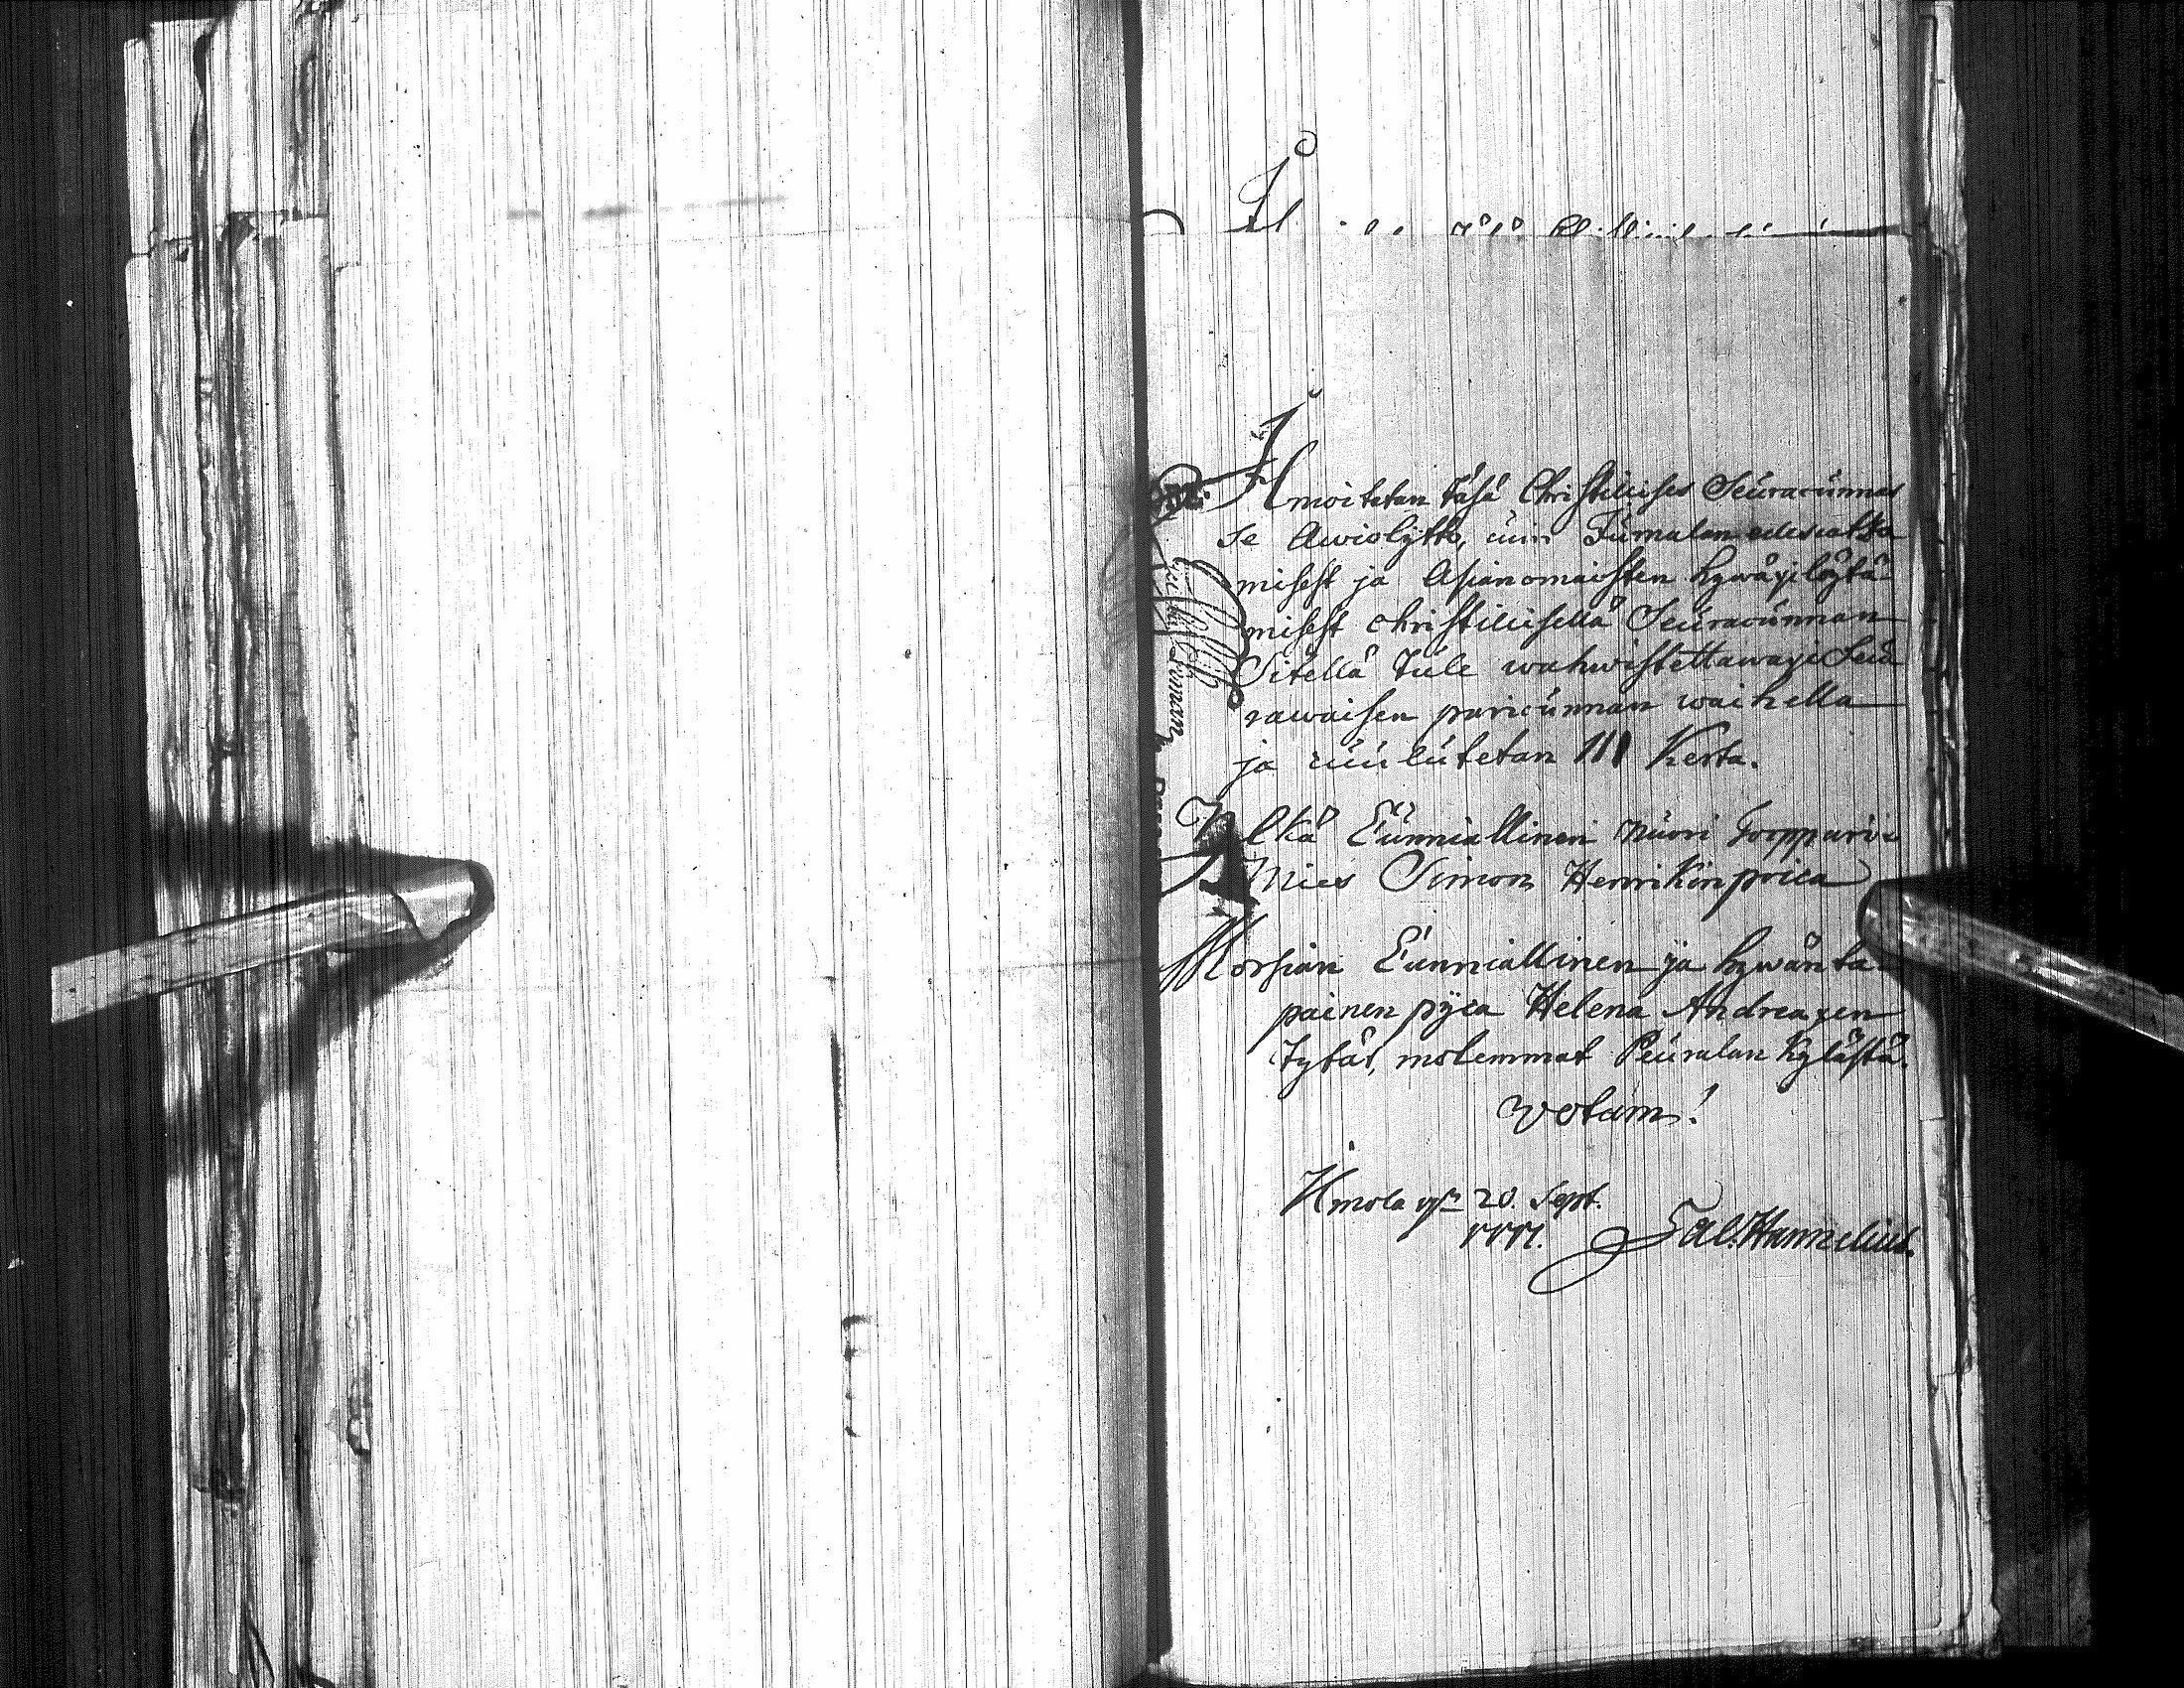 Ilmoitetan täsä Christilises Seuracunnas
se Awiolijtto, cuin Jumalan edescatzo
misest ja Asianomaisten hywäxilöytä-
misest christilisellä Seuracunnan
Sitellä tule wahwistettawaxi Seu
rawaisen paricunnan waihella
ja cuulutetan III Kerta.
Ylkä Cunniallinen nuori Torppari
Mies Simon Henrikin poica
Morsian Cunniallinen ja hywänta-
painen pijca Helena Andreaxen
tytär, molemmat Peuralan Kylästä.
votum!
Urnola 20. Sept.
1771. Sal. Hannelius.